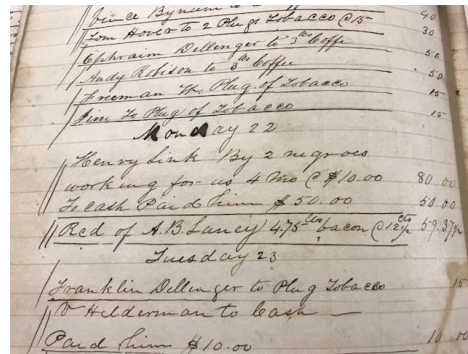 Vince Bynum to 40
Tom Hover to 2 Plugs Tobacco @ 15 30
Ephraim Dellinger to 3 lbs Coffe 50
Andy Robison to 3 lbs Coffee 50
Freeman to Plug of Tobacco 15
Jim To Plug of Tobacco 15
Monday 22
Henry Sink By 2 negroes
working for us 4 Mo @ $10.00 80 00
To cash Paid him $50.00 50.00
Recd of A.B. Lancy 475 lbs bacon @ 12½ cts 59.37½
Tuesday 23
Franklin Dellinger to Plug Tobacco 15
V Helderman to Cash —
Paid him $10.00 10 00